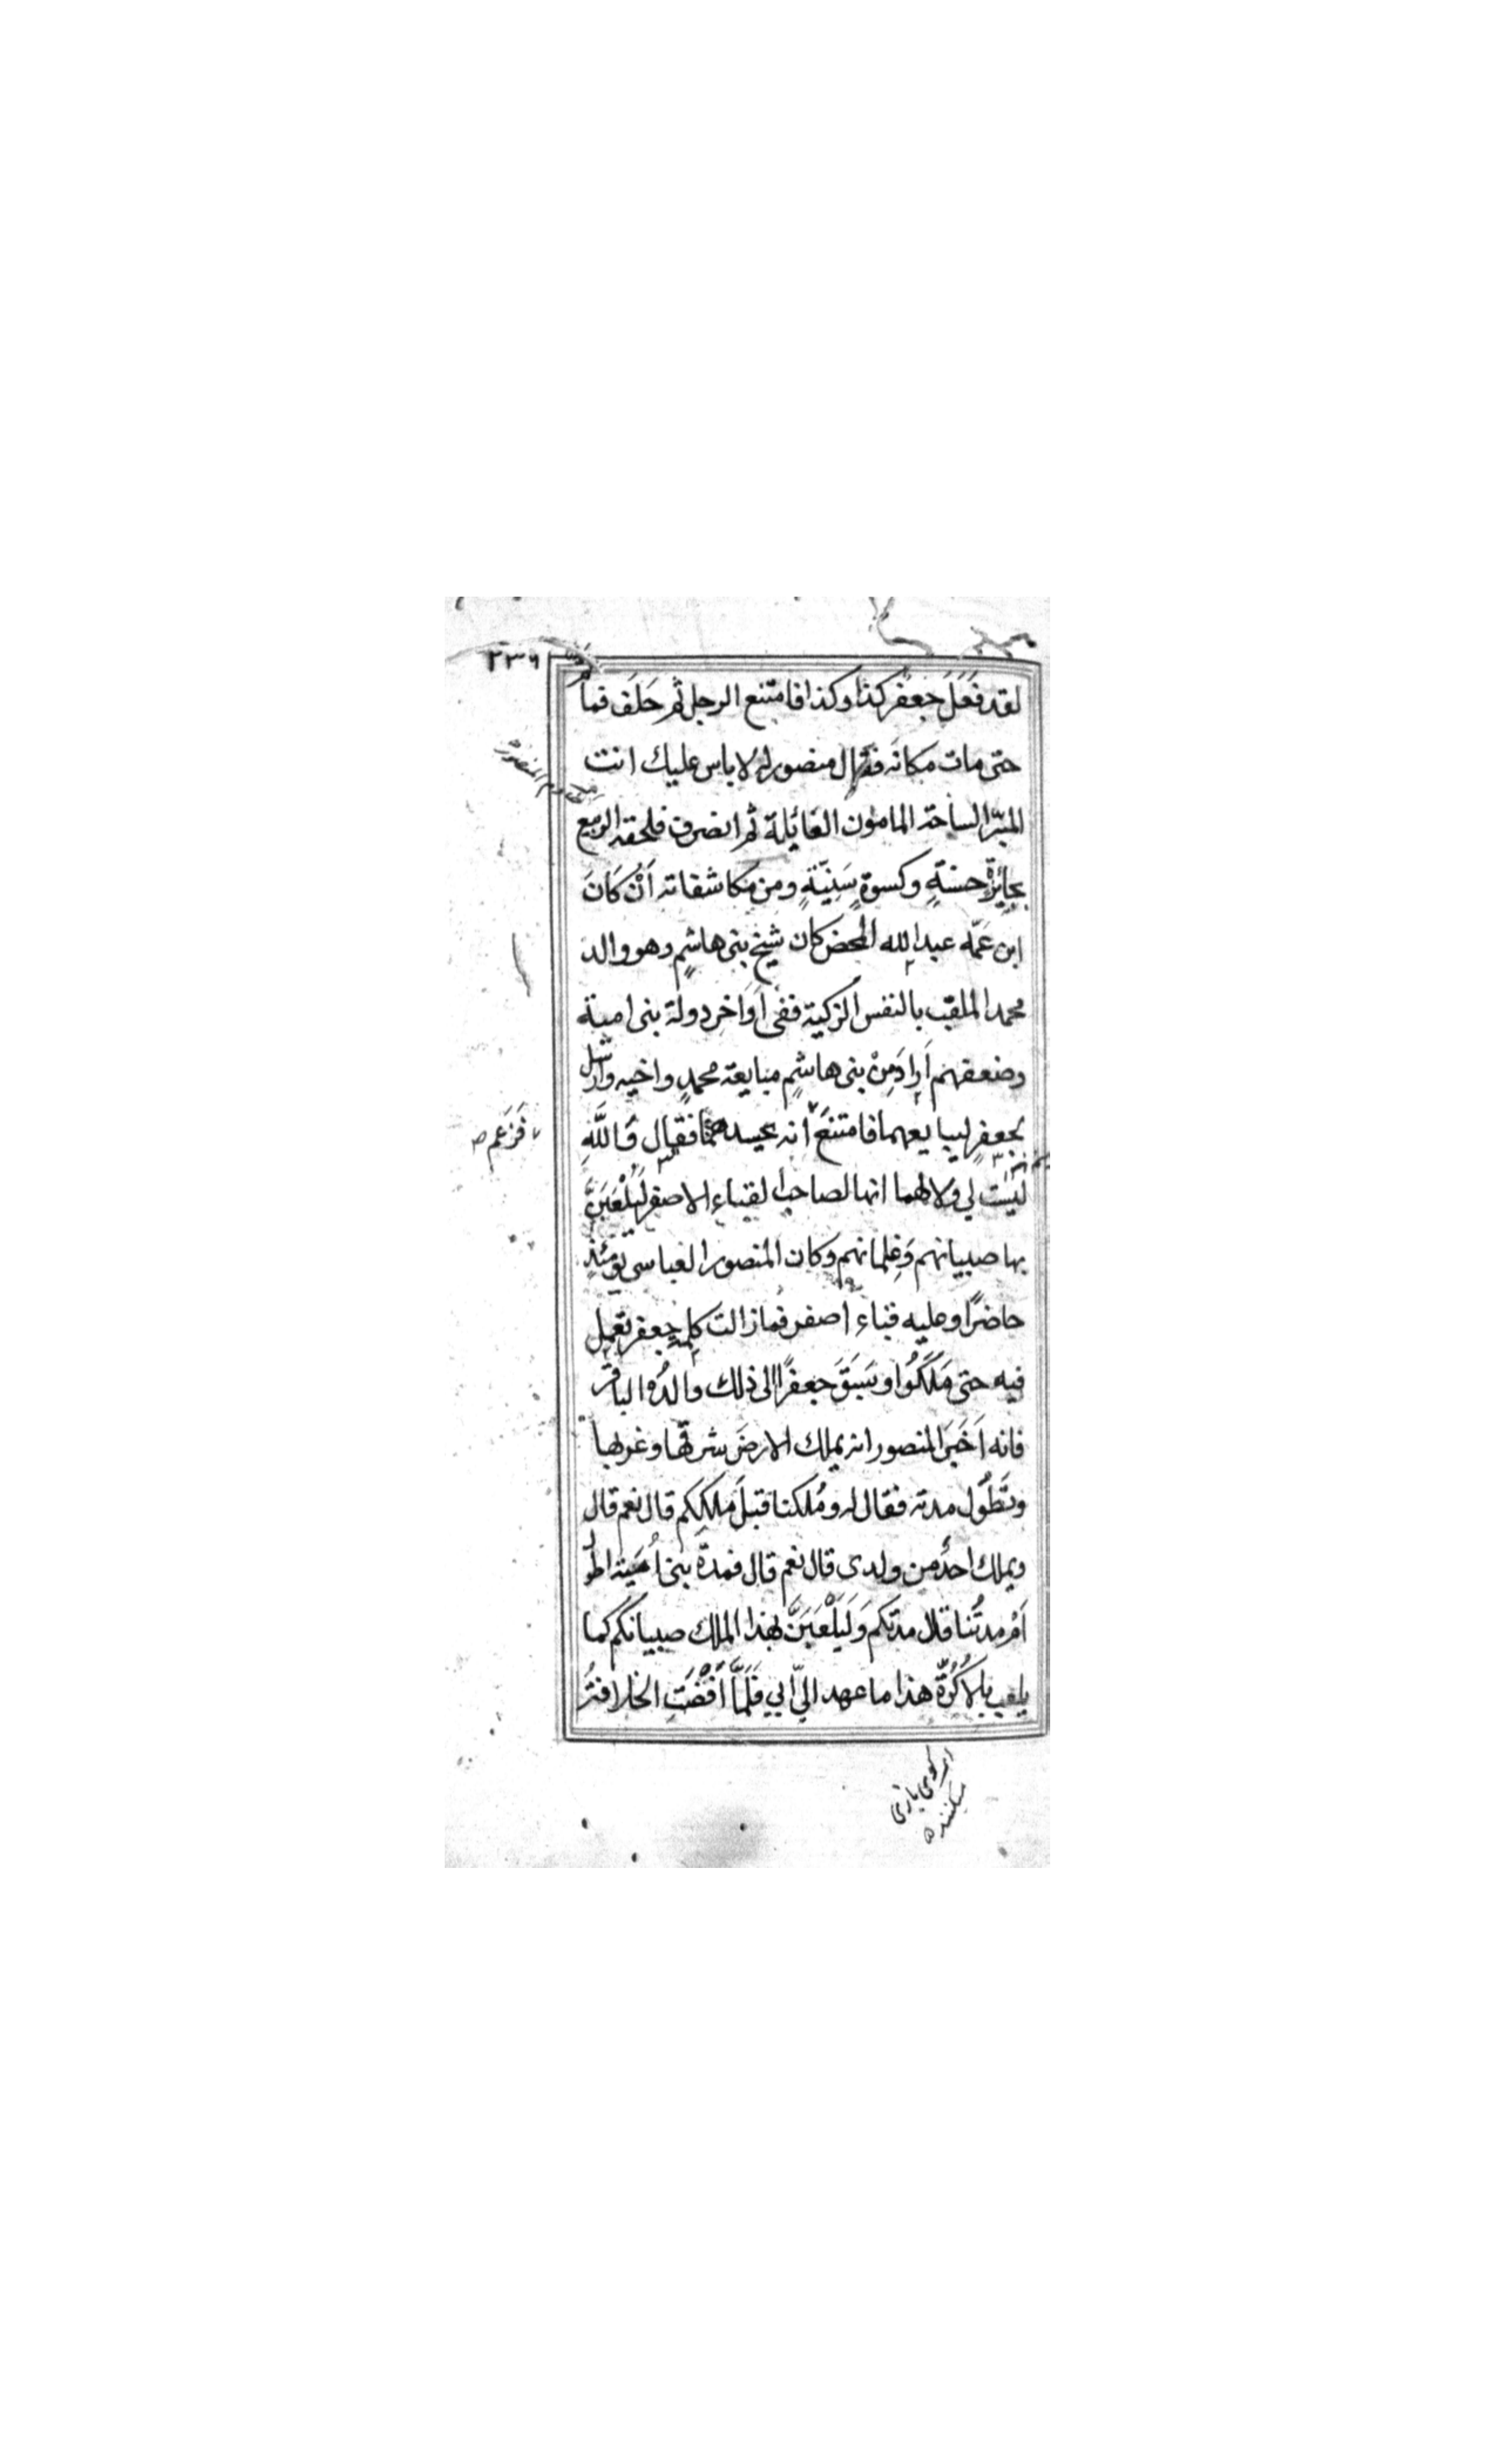 ٢٣٦
لقد فَعَلَ جعفر كذا وكذا فامتنع الرجل ثم حَلَف فما
حتى مات مكانه فقال منصور له لا باس عليك انت
المبرّا الساحة المامون الغائلة ثم انصرف فلحقه الربيع
بجايزةٍ حسنةٍ وكسوةٍ سَنِيّةٍ ومن مكاشفاته اَنْ كَانَ
ابن عَمّه عبد الله المحض كان شيخ بنى هاشمٍ وهو والد
محمد الملقب بالنفس الزكية ففى اَوَاخِر دولة بنى امية
وضعفهم اَرادَ مِنْ بنى هاشمٍ مبايعة محمدٍ واخيه وارسل
لجعفرٍ ليبايعهما فامتنعَ انه يحسدهما فقال وَاللَّهِ
فَزَعَم
لَيْسَت لى ولا لهما انها لصاحب القباء الاصفر لَيَلْعَبَنَّ
بها صبيانهم وَغِلمانهم وكان المنصور العباسى يَوْمَئذٍ
حاضرًا وعليه قباء اصفر فمازالت كلمة جعفر تعمل
فيه حتى مَلَكُوا وسَبَقَ جعفرًا الى ذلك والدُه الباقر
فانه اَخبَر المنصور انه يملك الارضَ شرقَها وغربها
وتَطُول مدته فقال له ومُلكنا قبلَ ملككم قال نعم قال
ويملك احدٌ من ولدى قال نعم قال فمدة بنى اُمَيّة اطول
اَمْ مدتُنا قال مدتكم وَلَيَلْعَبَنَّ بهذا الملك صبيانكم كما
يلعب بالاكُرَّة هذا ما عهد الىّ ابى فَلَمَّا اَفْضَتِ الخلافةُ
كوى بازى
ميكنند